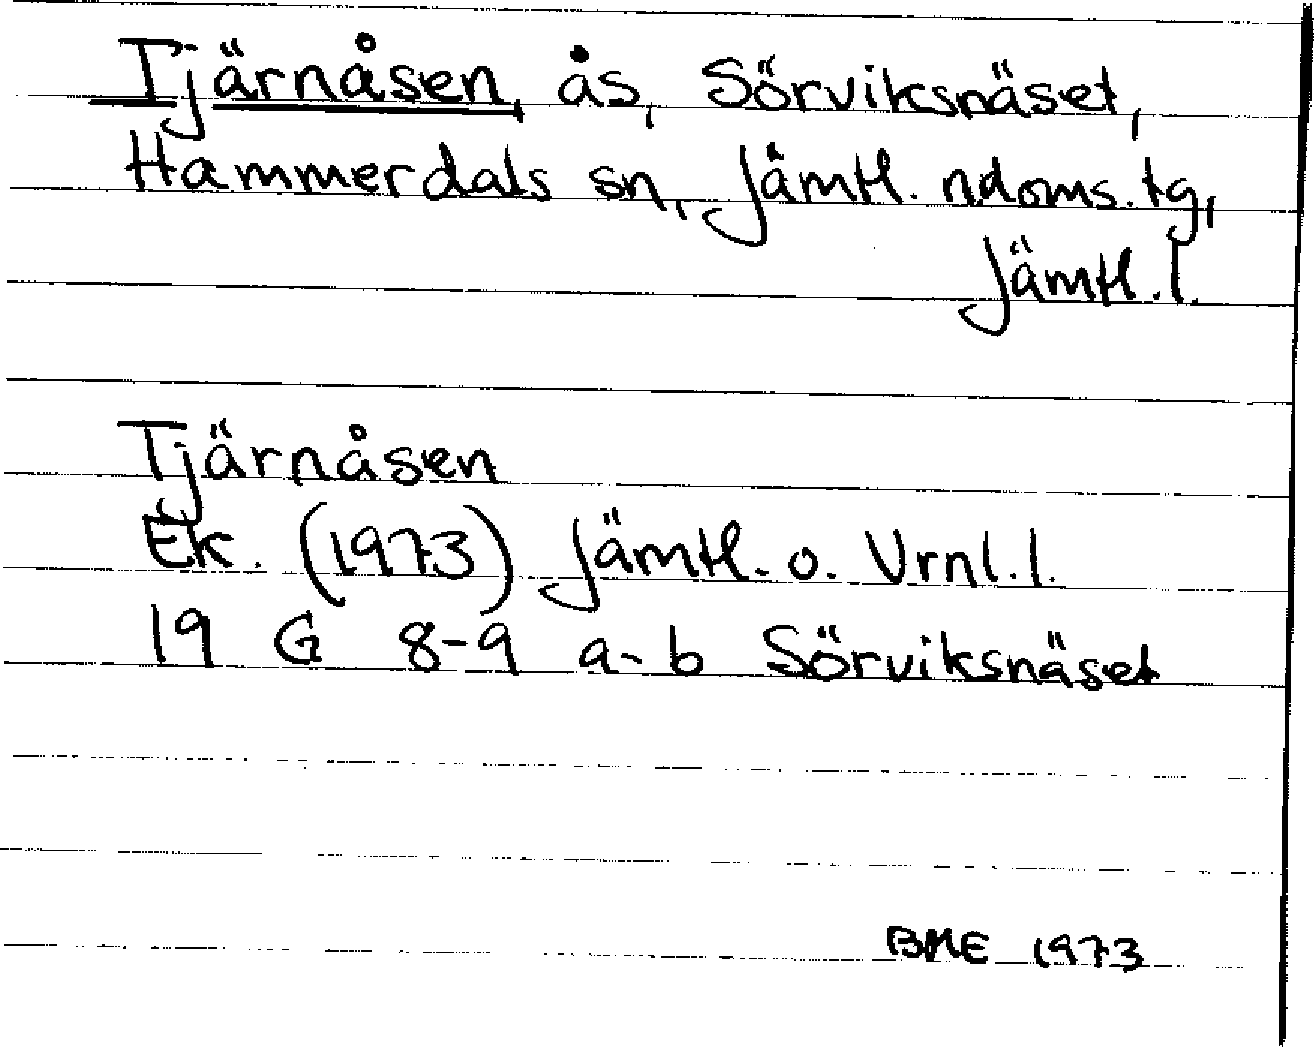 Tjärnåsen, ås, Sörviksnäset,
Hammerdals sn, Jämtl. ndoms. tg,
Jämtl. l.
Tjärnåsen
Ek. (1973) Jämtl. o. Vrnl. l.
19 G 8-9 a-b Sörviksnäset
BME 1973